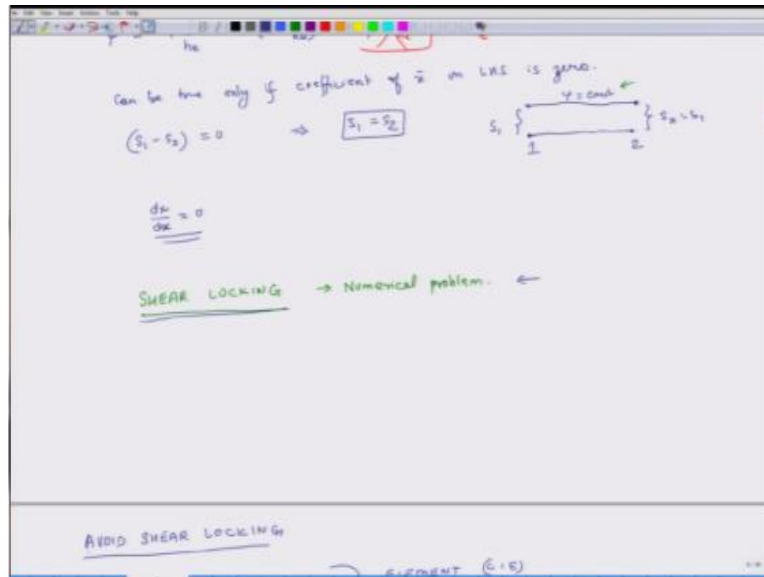 he
Can be true only if coefficient of x̄ on LHS is zero.
(S₁ - S₂) = 0 ⇒ S₁ = S₂
ψ = const
S₁
1 2
dψ/dx = 0
SHEAR LOCKING → Numerical problem. ←
AVOID SHEAR LOCKING
ELEMENT